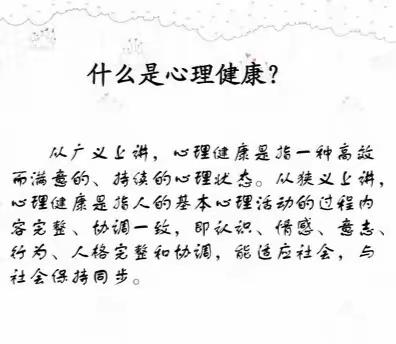 什么是心理健康？
从广义上讲，心理健康是指一种高效
而满意的、持续的心理状态。从狭义上讲，
心理健康是指人的基本心理活动的过程内
容完整、协调一致，即认识、情感、意志、
行为、人格完整和协调，能适应社会，与
社会保持同步。